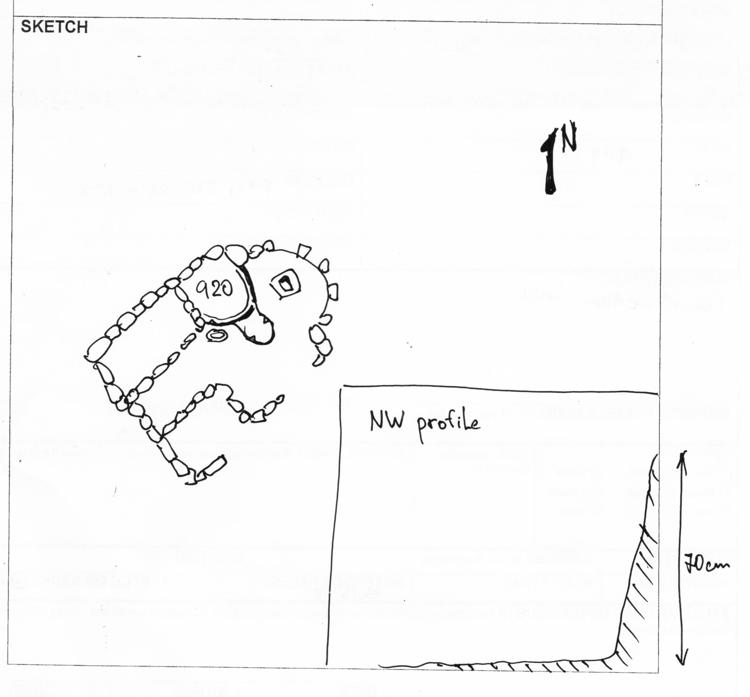 SKETCH
N
920
NW profile
70cm